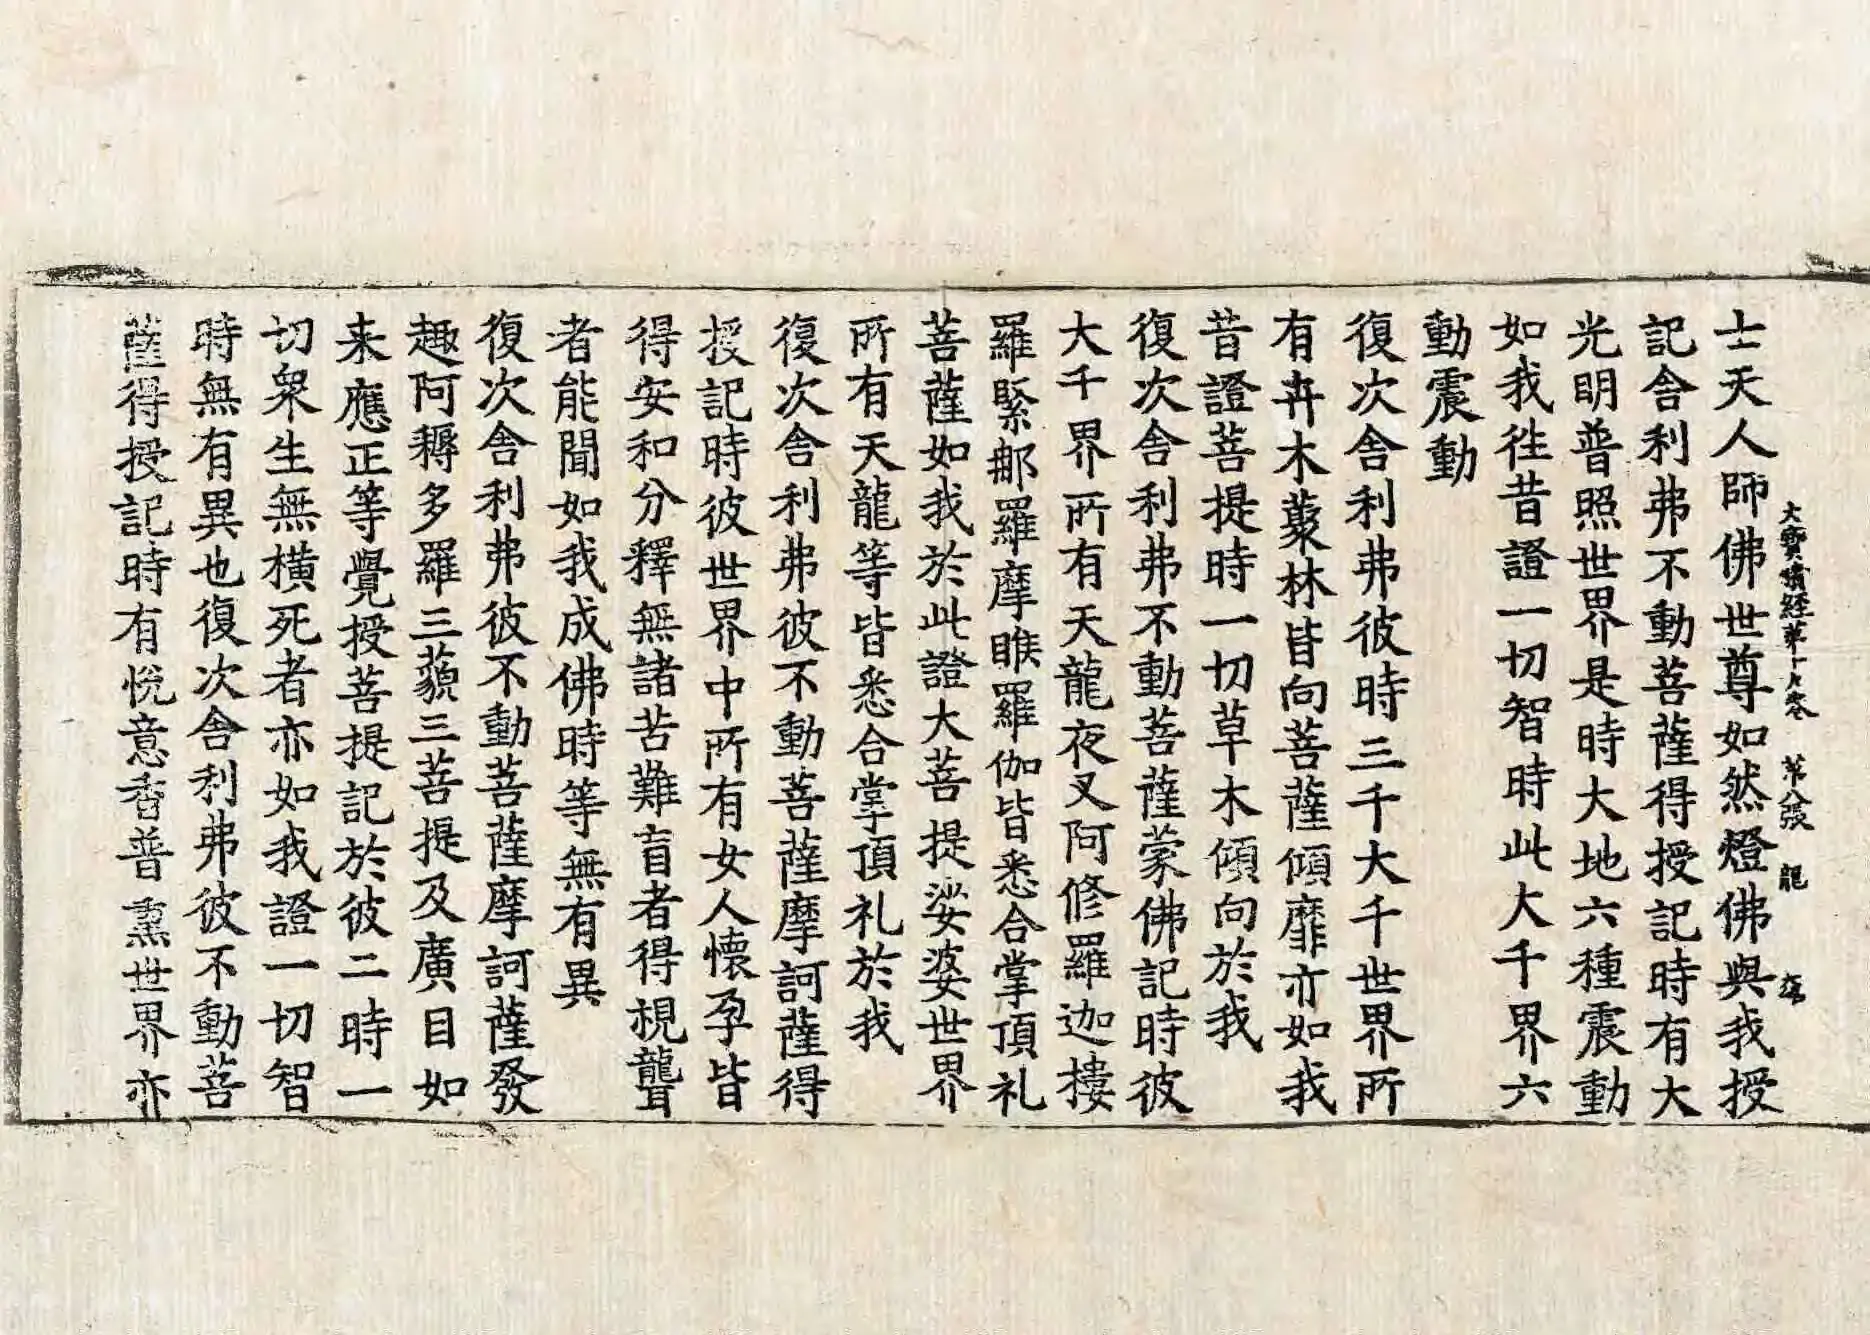 大寶積經第十九卷 第八張 龍
士天人師佛世尊如然燈佛與我授
記舍利弗不動菩薩得授記時有大
光明普照世界是時大地六種震動
如我往昔證一切智時此大千界六
動震動
復次舍利弗彼時三千大千世界所
有卉木藂林皆向菩薩傾靡亦如我
昔證菩提時一切草木傾向於我
復次舍利弗不動菩薩蒙佛記時彼
大千界所有天龍夜叉阿修羅迦樓
羅緊那羅摩睺羅伽皆悉合掌頂礼
菩薩如我於此證大菩提娑婆世界
所有天龍等皆悉合掌頂礼於我
復次舍利弗彼不動菩薩摩訶薩得
授記時彼世界中所有女人懷孕皆
得安和分釋無諸苦難盲者得視聾
者能聞如我成佛時等無有異
復次舍利弗彼不動菩薩摩訶薩發
趣阿耨多羅三藐三菩提及廣目如
来應正等覺授菩提記於彼二時一
切衆生無横死者亦如我證一切智
時無有異也復次舍利弗彼不動菩
薩得授記時有悅意香普熏世界亦